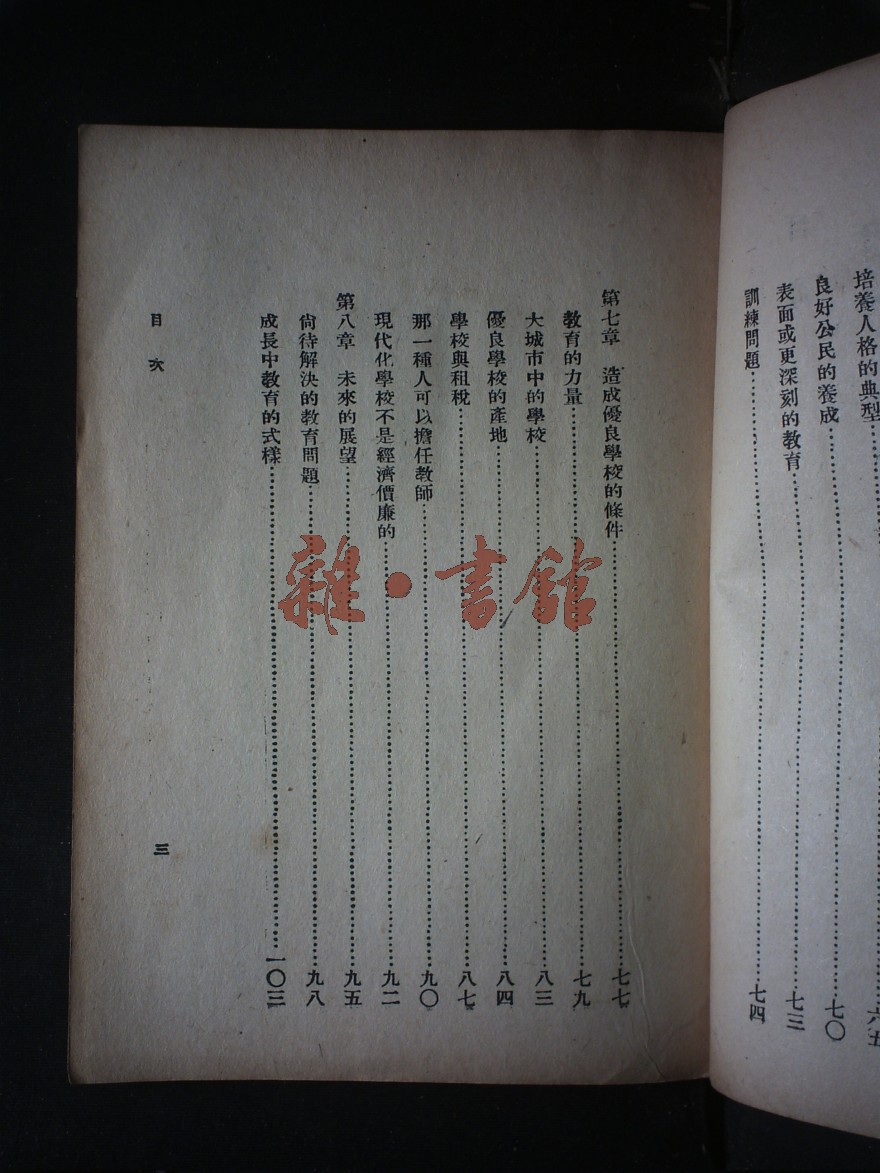 培養人格的典型……六五
良好公民的養成……七〇
表面或更深刻的教育……七三
訓練問題……七四
第七章 造成優良學校的條件……七七
教育的力量……七九
大城市中的學校……八三
優良學校的產地……八四
學校與租稅……八七
那一種人可以擔任教師……九〇
現代化學校不是經濟價廉的……九二
第八章 未來的展望……九五
尚待解決的教育問題……九八
成長中教育的式樣……一〇三
目次
三
雜·書館